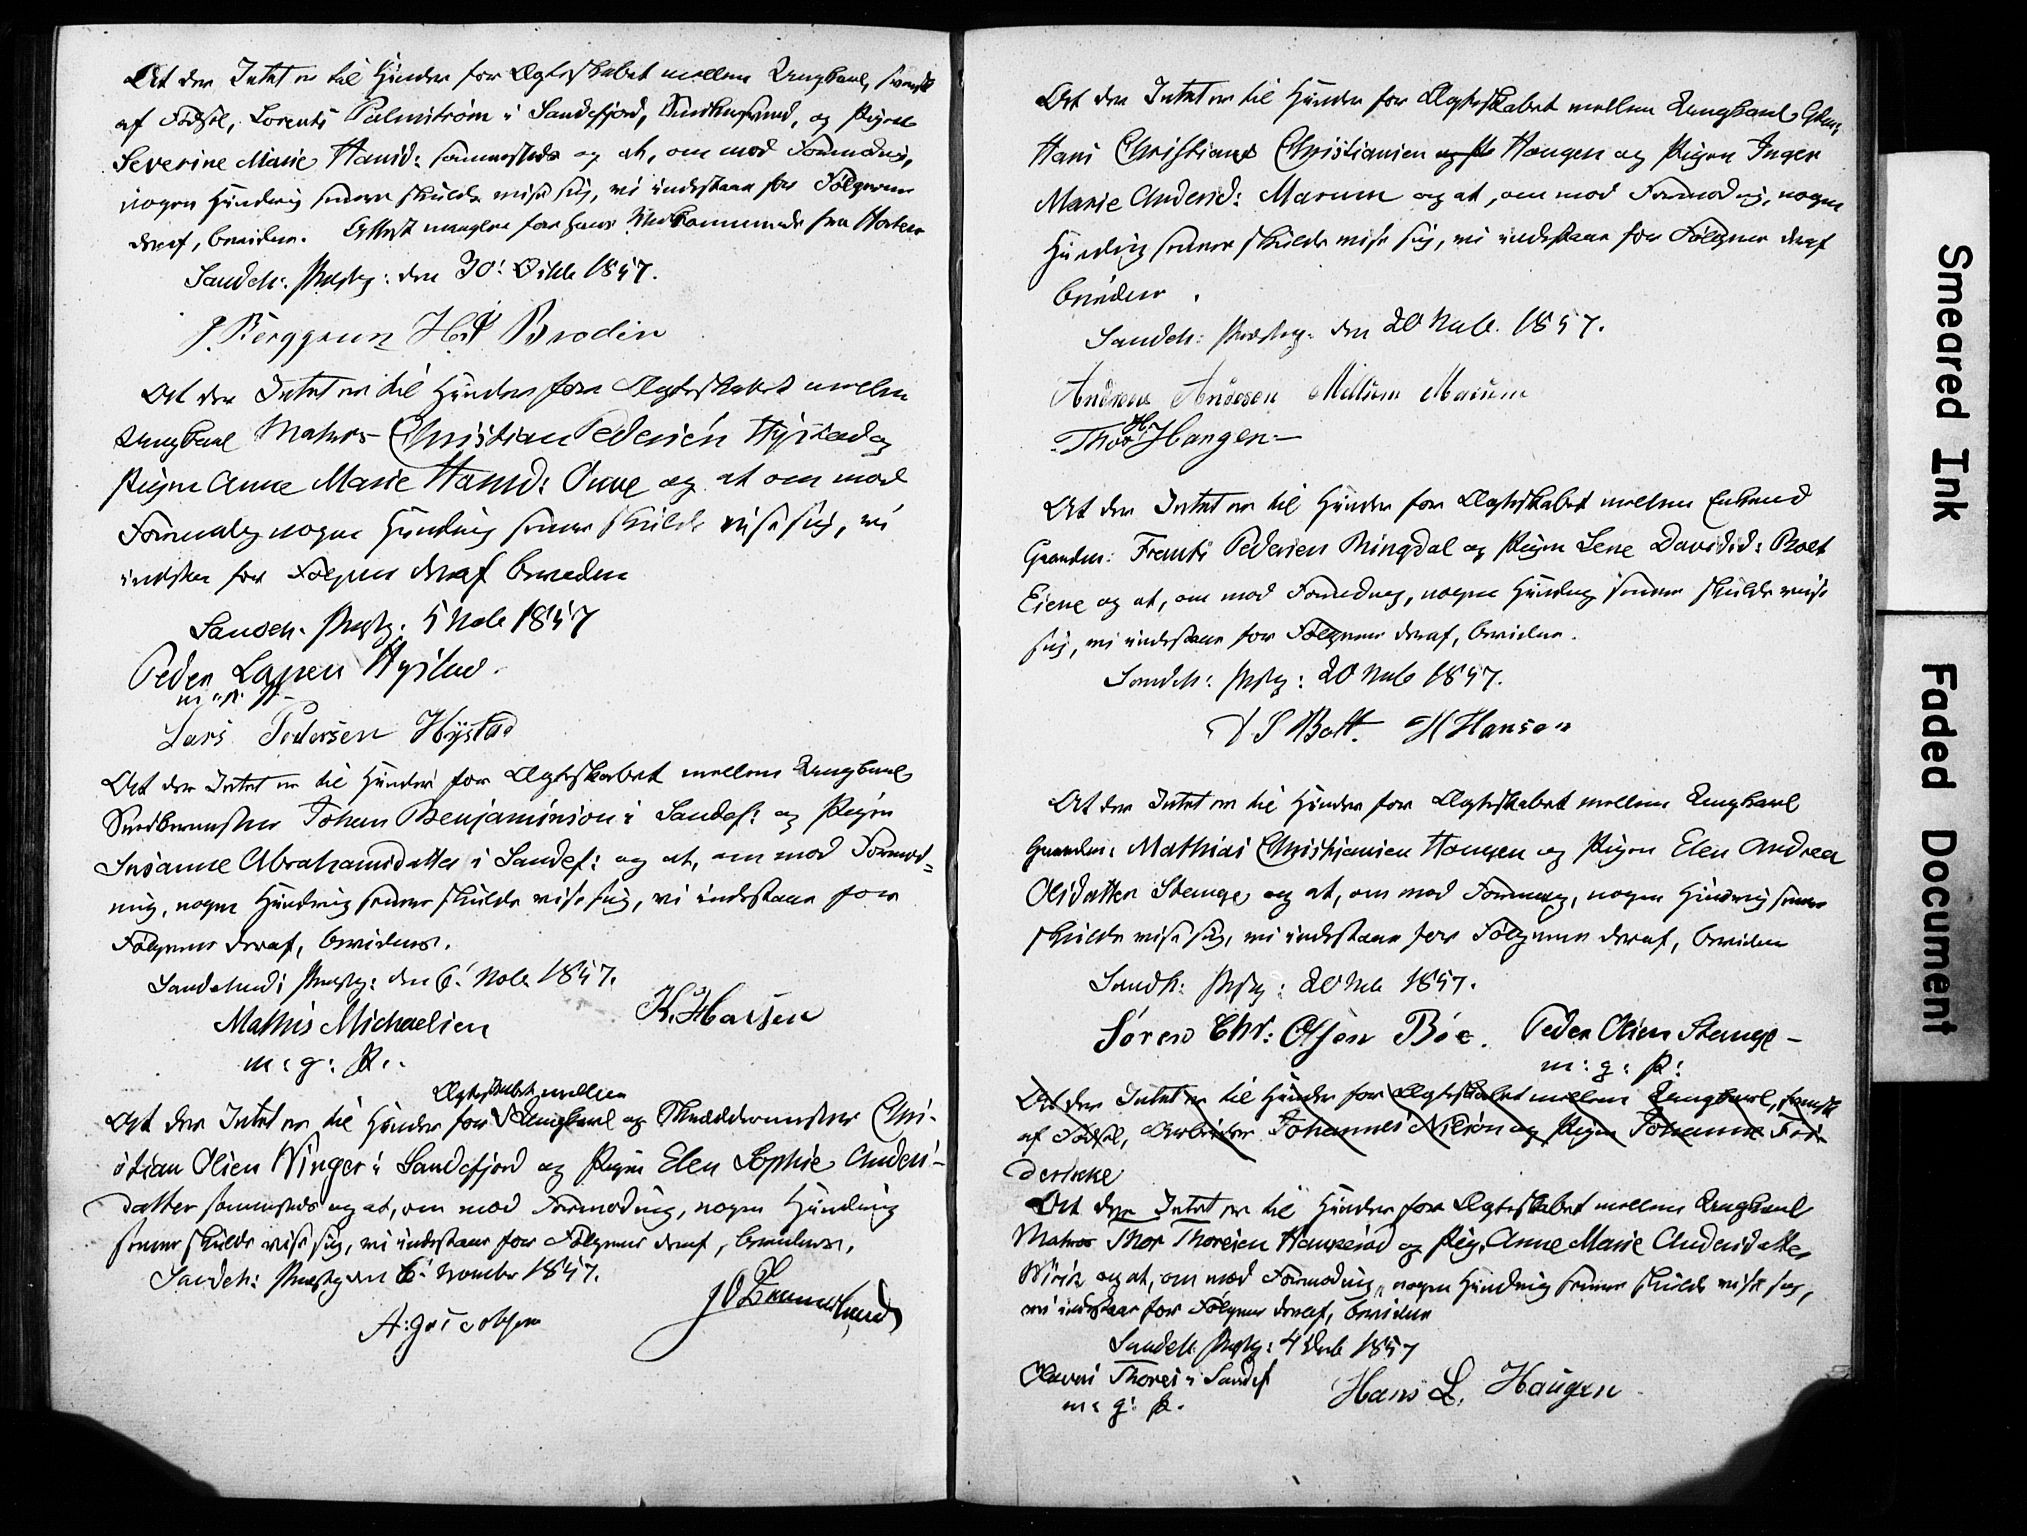 At der Intet er til Hinder for Ægteskabet mellem Ungkarl, svensk
af Fødsel, Lorents Palmstrøm i Sandefjord, og Pigen
Severine Marie Hansd: sammesteds og at, om mod Formodn,
nogen Hindring senere skulde vise sig, vi indestaae for Følgerne
deraf, bevidnes. Attest mangler for hans Vedkommende fra Horten
Sandeh: Præstg: den 30' Octbr 1857.
J. Berggreen H. Brodin
At der Intet er til Hinder for Ægteskabet mellem
Ungkarl Matros Christian Pedersen Hystad og
Pigen Anne Marie Hansd: og at om mod
Formodng nogen Hindring senere skulde vise sig, vi
indstaa for Følgerne deraf bevidnes
Sandeh. Præstg. 5 Novb 1857
Peder Larsen Hystad.
m. p. P.
Lars Pedersen Hystad
At der Intet er til Hinder for Ægteskabet mellem Ungkarl
Smedemester Johan Benjaminson i Sandef: og Pigen
Susanne Abrahamsdatter i Sandef: og at, om mod Formod=
ning, nogen Hindring senere skulde vise sig, vi indestaae for
Følgerne deraf, bevidnes.
Sandeherreds Præstg: den 6' Novb. 1857.
Mathis Michaelsen K. Hansen
m: g: P:.
Ægteskabet mellem
At der Intet er til Hinder for Ungkarl og Skræddermester Chri-
stian Olsen Winger i Sandefjord og Pigen Elen Sophie Anders-
datter sammesteds og at, om mod Formodning, nogen Hindring
senere skulde vise sig, vi indestaae for Følgerne deraf, bevidnes.
Sandeh: Præstg den 6' November 1857.
A: Jacobsen
At der Intet er til Hinder for Ægteskabet mellem Ungkarl
Hans Christians Christiansen Haugen og Pigen Inger
Marie Andersd: Marum og at, om mod Formodng, nogen
Hindring senere skulde vise sig, vi indestaae for Følgerne deraf
bevidnes.
Sandeh: Præstg: den 20 Novb. 1857.
Andreas Andersen Mellum Marum
Thor H. Haugen-
At der Intet er til Hinder for Ægteskabet mellem Enkemd
Gaardm: Frants Pedersen Ringdal og Pigen Lene Davidsd: Bolt
og at, om mod Formodng, nogen Hindring senere skulde vise
sig, vi indestaae for Følgerne deraf, bevidnes.
Sandeh: Præstg: 20 Novb 1857.
D S Bolt. H Hansen
At der Intet er til Hinder for Ægteskabet mellem Ungkarl
Gaardm: Mathias Christiansen Haugen og Pigen Elen Andrea
Olsdatter Stange og at, om mod Formodng, nogen Hindring senere
skulde vise sig, vi indestaae for Følgerne deraf, bevidnes
Sandh: Præstg: 20 Nvb 1857.
Søren Chr: Olsen Bøe. Peder Olsen Stange -
m: g: P:
At der Intet er til Hinder for Ægteskabet mellem Ungkarl, svensk
af Fødsel, Arbeider Johannes Nilson og Pigen Johanne Fre-
derikke
At der Intet er til Hinder for Ægteskabet mellem Ungkarl
Matros Thor Thorsen Haukerød og Pig. Anne Marie Andersdatter
Virik og at, om mod Formodning, nogen Hindring senere skulde vise sig,
vi indestaae for Følgerne deraf, bevidnes
Sandeh. Præstg: 4 Decb 1857
Thores i Sandef Hans L. Haugen
m: g: P.
Smeared Ink
Faded Document